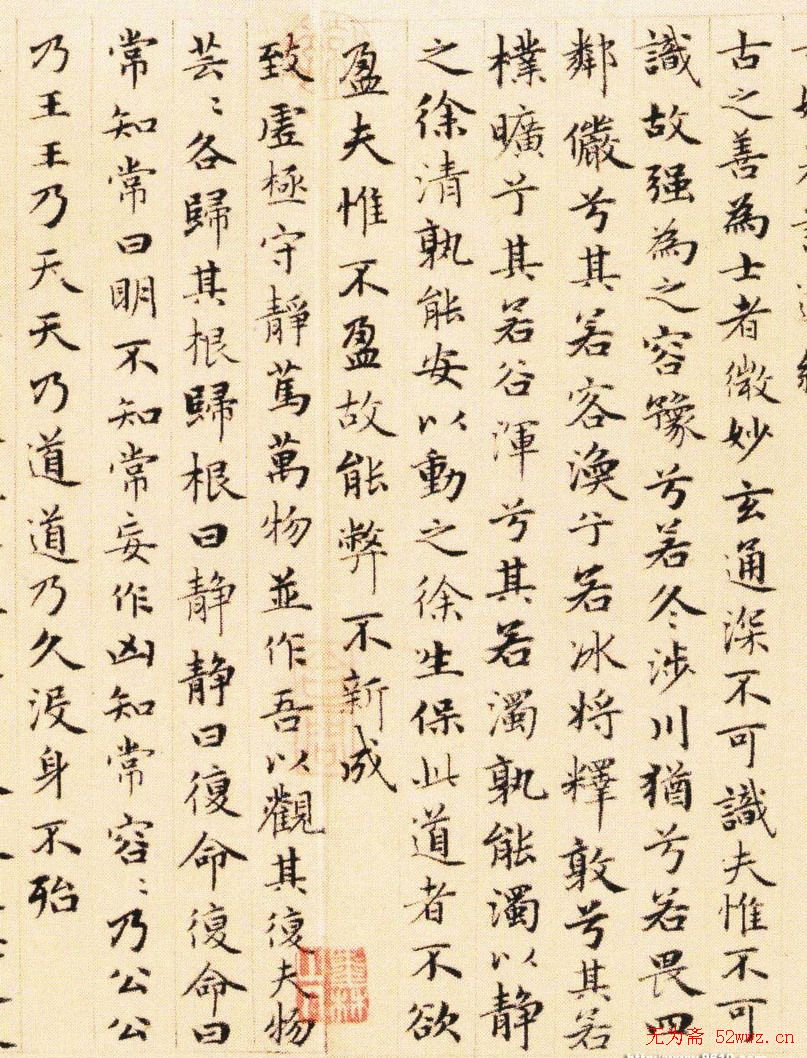 古之善為士者微妙玄通深不可識夫惟不可
識故强為之容豫兮若冬涉川猶兮若畏四
鄰儼兮其若客渙兮若冰将釋敦兮其若
樸曠兮其若谷渾兮其若濁孰能濁以静
之徐清孰能安以動之徐生保此道者不欲
盈夫惟不盈故能弊不新成
致虛極守静篤萬物並作吾以觀其復夫物
芸〻各歸其根歸根曰静静曰復命復命曰
常知常曰明不知常妄作凶知常容〻乃公公
乃王王乃天天乃道道乃久没身不殆
无为斋 52wwz.cn